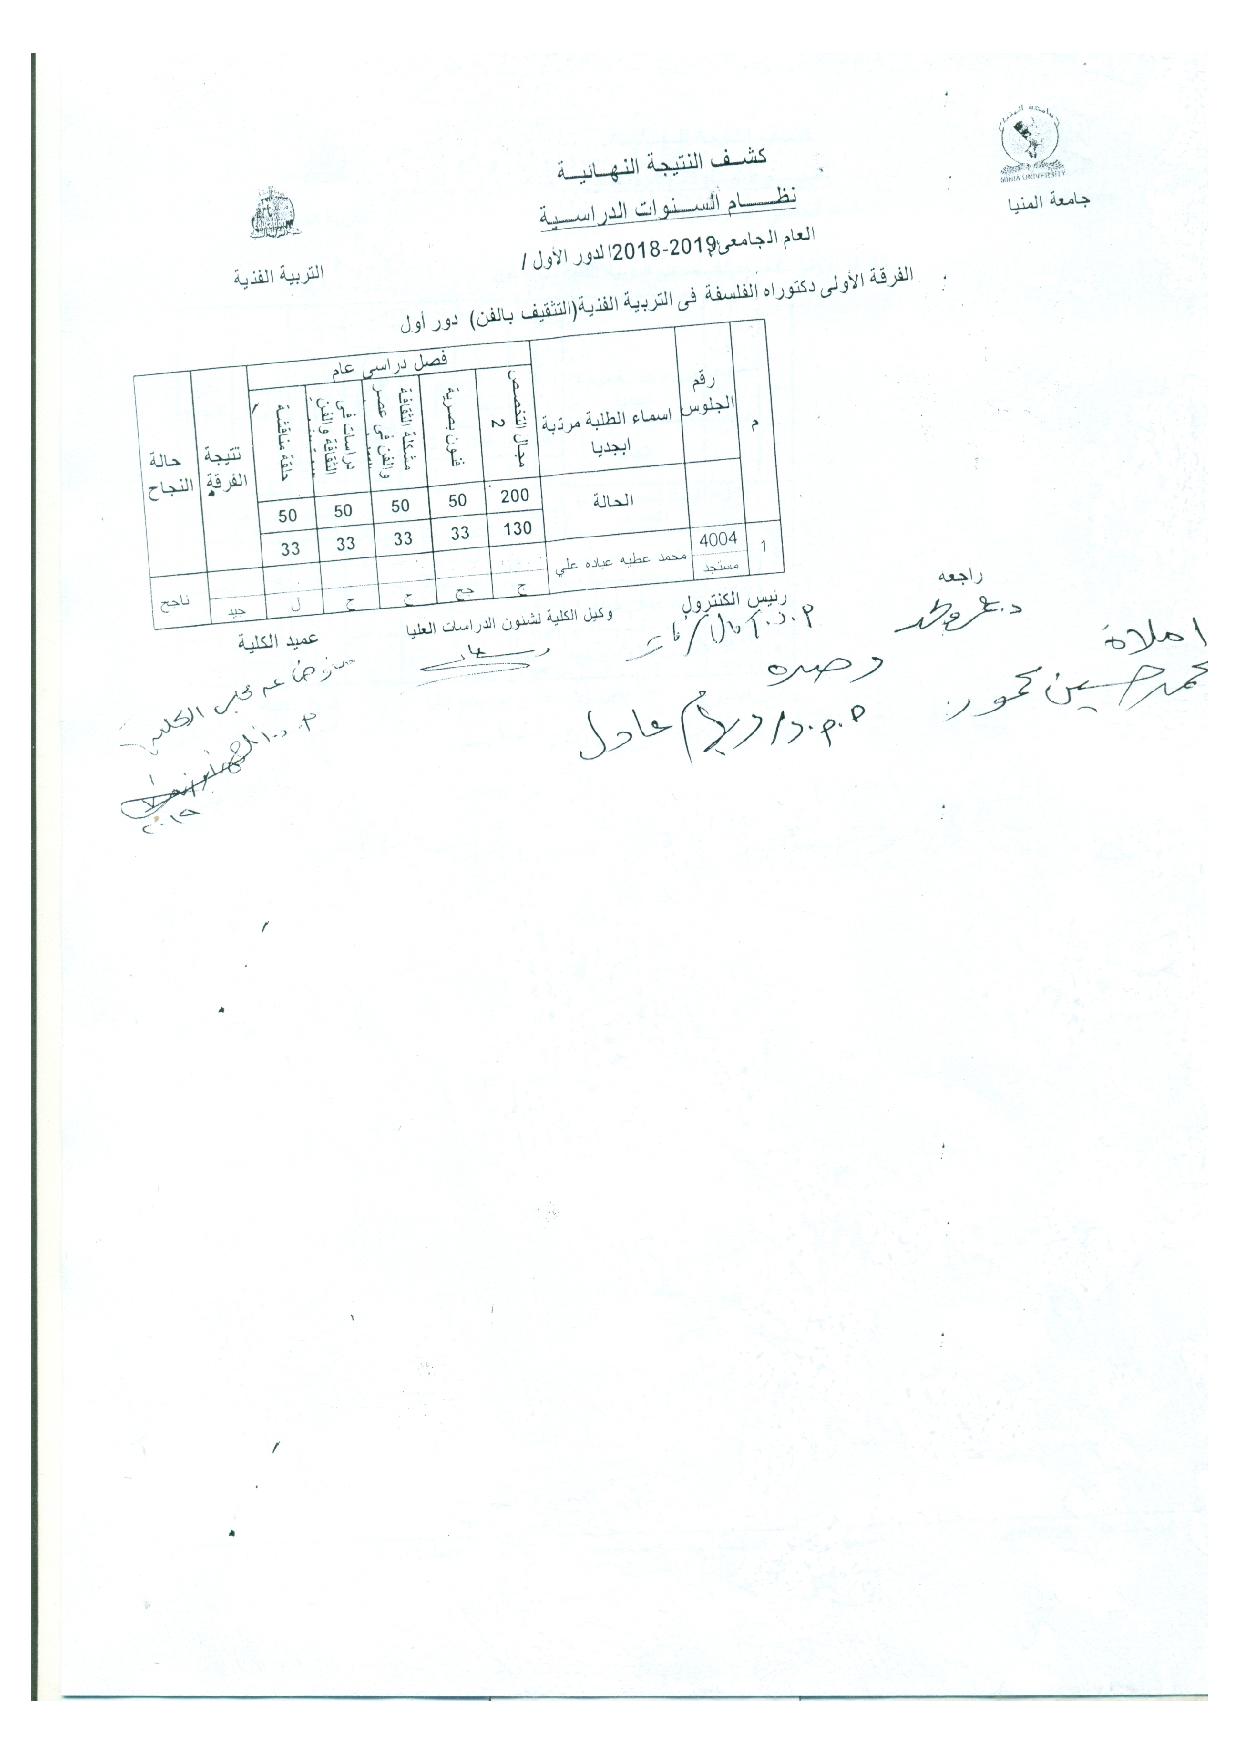 جامعة المنيا
MINIA UNIVERSITY
جامعة المنيا
كشف النتيجة النهائية
نظام السنوات الدراسية
العام الجامعى 2018-2019 الدور الأول /
التربية الفنية
الفرقة الأولى دكتوراه الفلسفة فى التربية الفنية (التثقيف بالفن) دور أول
م
رقم الجلوس
اسماء الطلبة مرتبة ابجديا
فصل دراسى عام
مجال التخصص 2
فنون بصرية
مشكلة الثقافة والفن فى عصر
دراسات فى الثقافة والفن
حلقة مناقشة
نتيجة الفرقة
حالة النجاح
الحالة 200 50 50 50 50
130 33 33 33 33
1 4004 محمد عطيه عباده علي
مستجد ج جج ج ج ل جيد ناجح
راجعه
رئيس الكنترول
وكيل الكلية لشئون الدراسات العليا
عميد الكلية
املاة
محمد حسين محمود
رصده
عادل